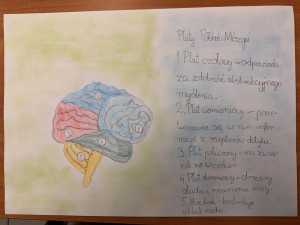 Płaty Półkul Mózgu
1. Płat czołowy - odpowiada
za zdolność abstrakcyjnego
myślenia.
2. Płat ciemieniowy - prze-
twarzane są w nim infor-
macje z receptorów dotyku.
3. Płat potyliczny - ma zwią-
zek ze wzrokiem.
4. Płat skroniowy - obszary
słuchu i rozumienia mowy.
5. Móżdżek - kontroluje
układ ruchu.